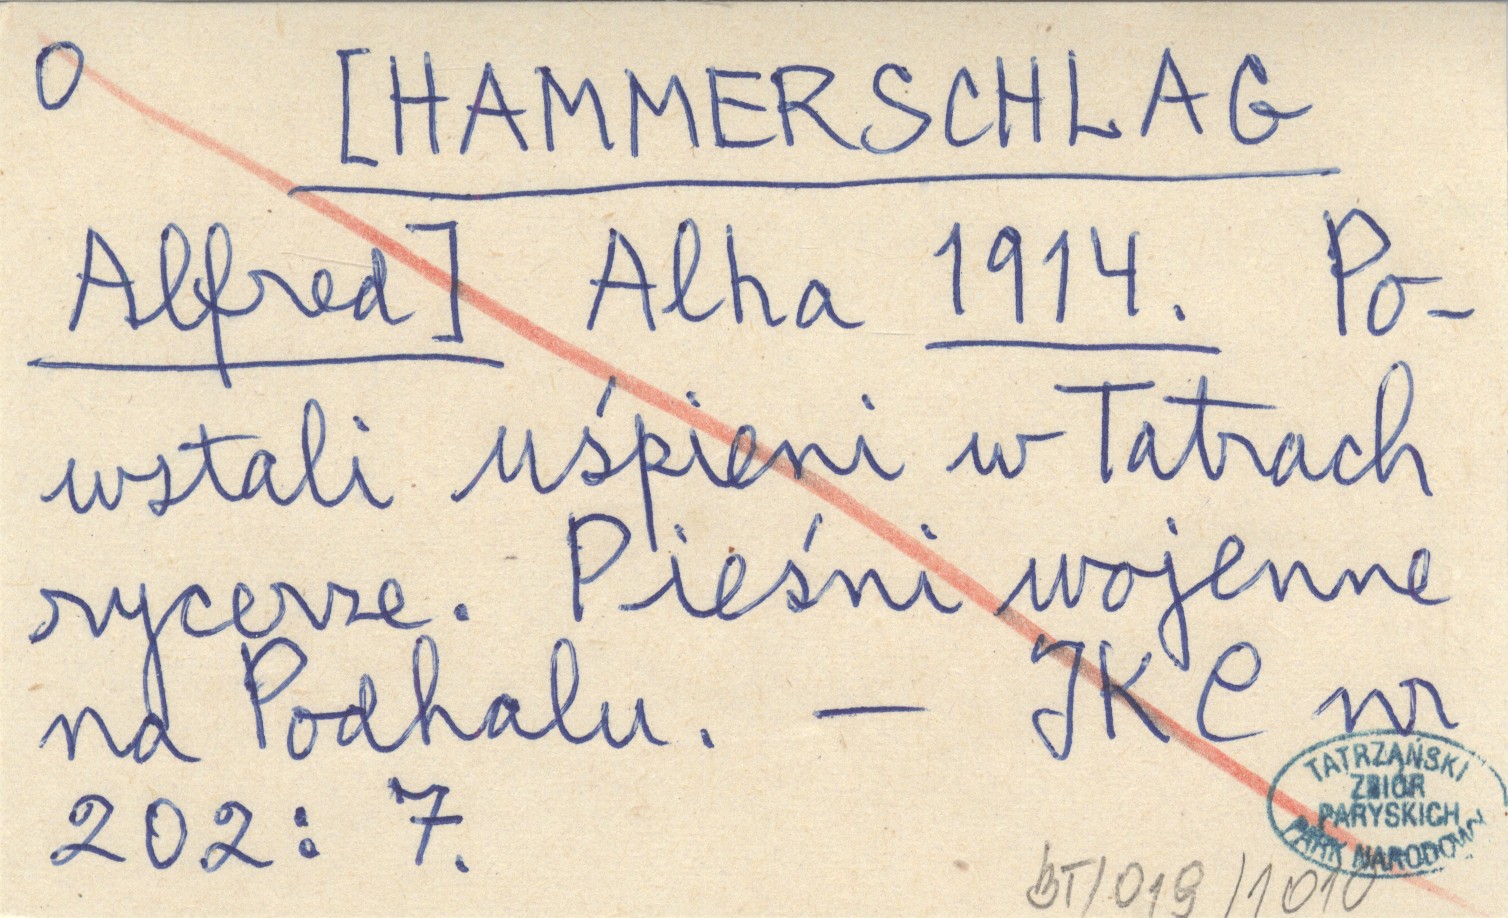 0 [HAMMERSCHLAG
Alfred] Alha 1914. Po-
wstali uśpieni w Tatrach
rycerze. Pieśni wojenne
na Podhalu. — JKC nr
202: 7.
TATRZAŃSKI
ZBIÓR
PARYSKICH
PARK NARODOWY
BT/019/1010